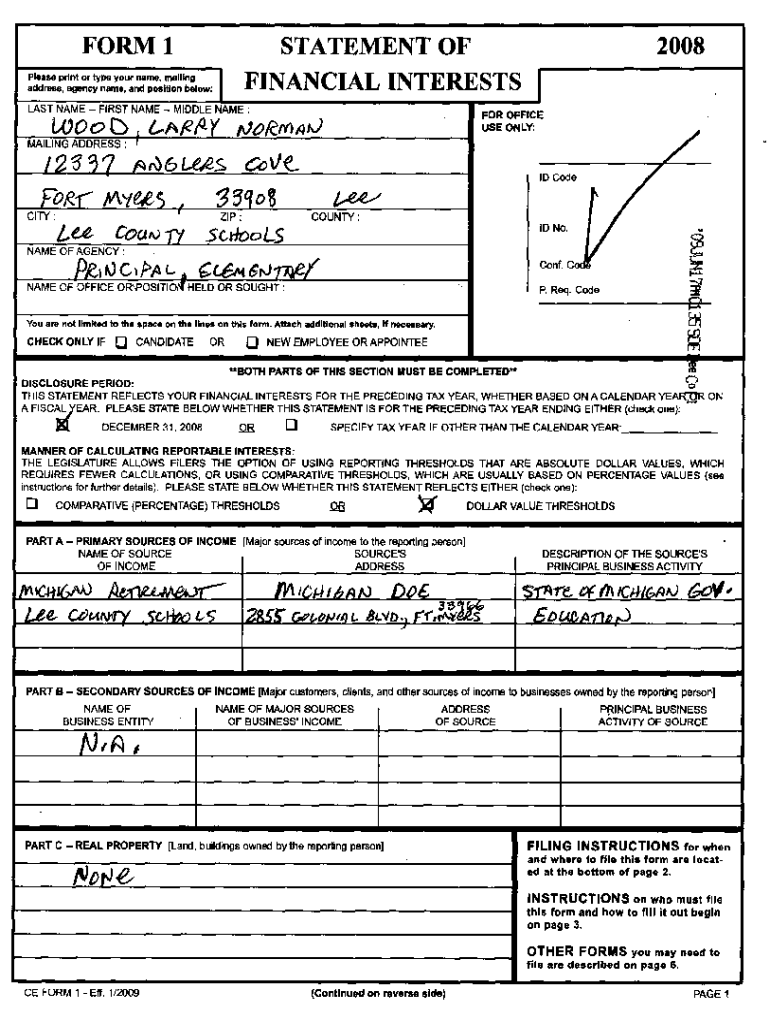 FORM 1 STATEMENT OF 2008
FINANCIAL INTERESTS
Please print or type your name, mailing
address, agency name, and position below:
LAST NAME – FIRST NAME – MIDDLE NAME :
WOOD, LARRY NORMAN
MAILING ADDRESS :
12337 ANGLERS COVE
FORT MYERS, 33908 Lee
CITY : ZIP : COUNTY :
Lee COUNTY SCHOOLS
NAME OF AGENCY :
PRINCIPAL, ELEMENTARY
NAME OF OFFICE OR POSITION HELD OR SOUGHT :
You are not limited to the space on the lines on this form. Attach additional sheets, if necessary.
CHECK ONLY IF ☐ CANDIDATE OR ☐ NEW EMPLOYEE OR APPOINTEE
FOR OFFICE
USE ONLY:
ID Code
ID No.
Conf. Code
P. Req. Code
**BOTH PARTS OF THIS SECTION MUST BE COMPLETED**
DISCLOSURE PERIOD:
THIS STATEMENT REFLECTS YOUR FINANCIAL INTERESTS FOR THE PRECEDING TAX YEAR, WHETHER BASED ON A CALENDAR YEAR OR ON
A FISCAL YEAR. PLEASE STATE BELOW WHETHER THIS STATEMENT IS FOR THE PRECEDING TAX YEAR ENDING EITHER (check one):
☒ DECEMBER 31, 2008 OR ☐ SPECIFY TAX YEAR IF OTHER THAN THE CALENDAR YEAR:
MANNER OF CALCULATING REPORTABLE INTERESTS:
THE LEGISLATURE ALLOWS FILERS THE OPTION OF USING REPORTING THRESHOLDS THAT ARE ABSOLUTE DOLLAR VALUES, WHICH
REQUIRES FEWER CALCULATIONS, OR USING COMPARATIVE THRESHOLDS, WHICH ARE USUALLY BASED ON PERCENTAGE VALUES (see
instructions for further details). PLEASE STATE BELOW WHETHER THIS STATEMENT REFLECTS EITHER (check one):
☐ COMPARATIVE (PERCENTAGE) THRESHOLDS OR ☒ DOLLAR VALUE THRESHOLDS
PART A – PRIMARY SOURCES OF INCOME [Major sources of income to the reporting person]
NAME OF SOURCE SOURCE'S DESCRIPTION OF THE SOURCE'S
OF INCOME ADDRESS PRINCIPAL BUSINESS ACTIVITY
MICHIGAN RETIREMENT MICHIGAN DOE STATE OF MICHIGAN GOV.
Lee COUNTY SCHOOLS 2855 COLONIAL BLVD., FT. MYERS 33966 EDUCATION
PART B – SECONDARY SOURCES OF INCOME [Major customers, clients, and other sources of income to businesses owned by the reporting person]
NAME OF NAME OF MAJOR SOURCES ADDRESS PRINCIPAL BUSINESS
BUSINESS ENTITY OF BUSINESS' INCOME OF SOURCE ACTIVITY OF SOURCE
N.A.
PART C – REAL PROPERTY [Land, buildings owned by the reporting person]
NONE
FILING INSTRUCTIONS for when
and where to file this form are locat-
ed at the bottom of page 2.
INSTRUCTIONS on who must file
this form and how to fill it out begin
on page 3.
OTHER FORMS you may need to
file are described on page 6.
CE FORM 1 - Eff. 1/2009 (Continued on reverse side) PAGE 1